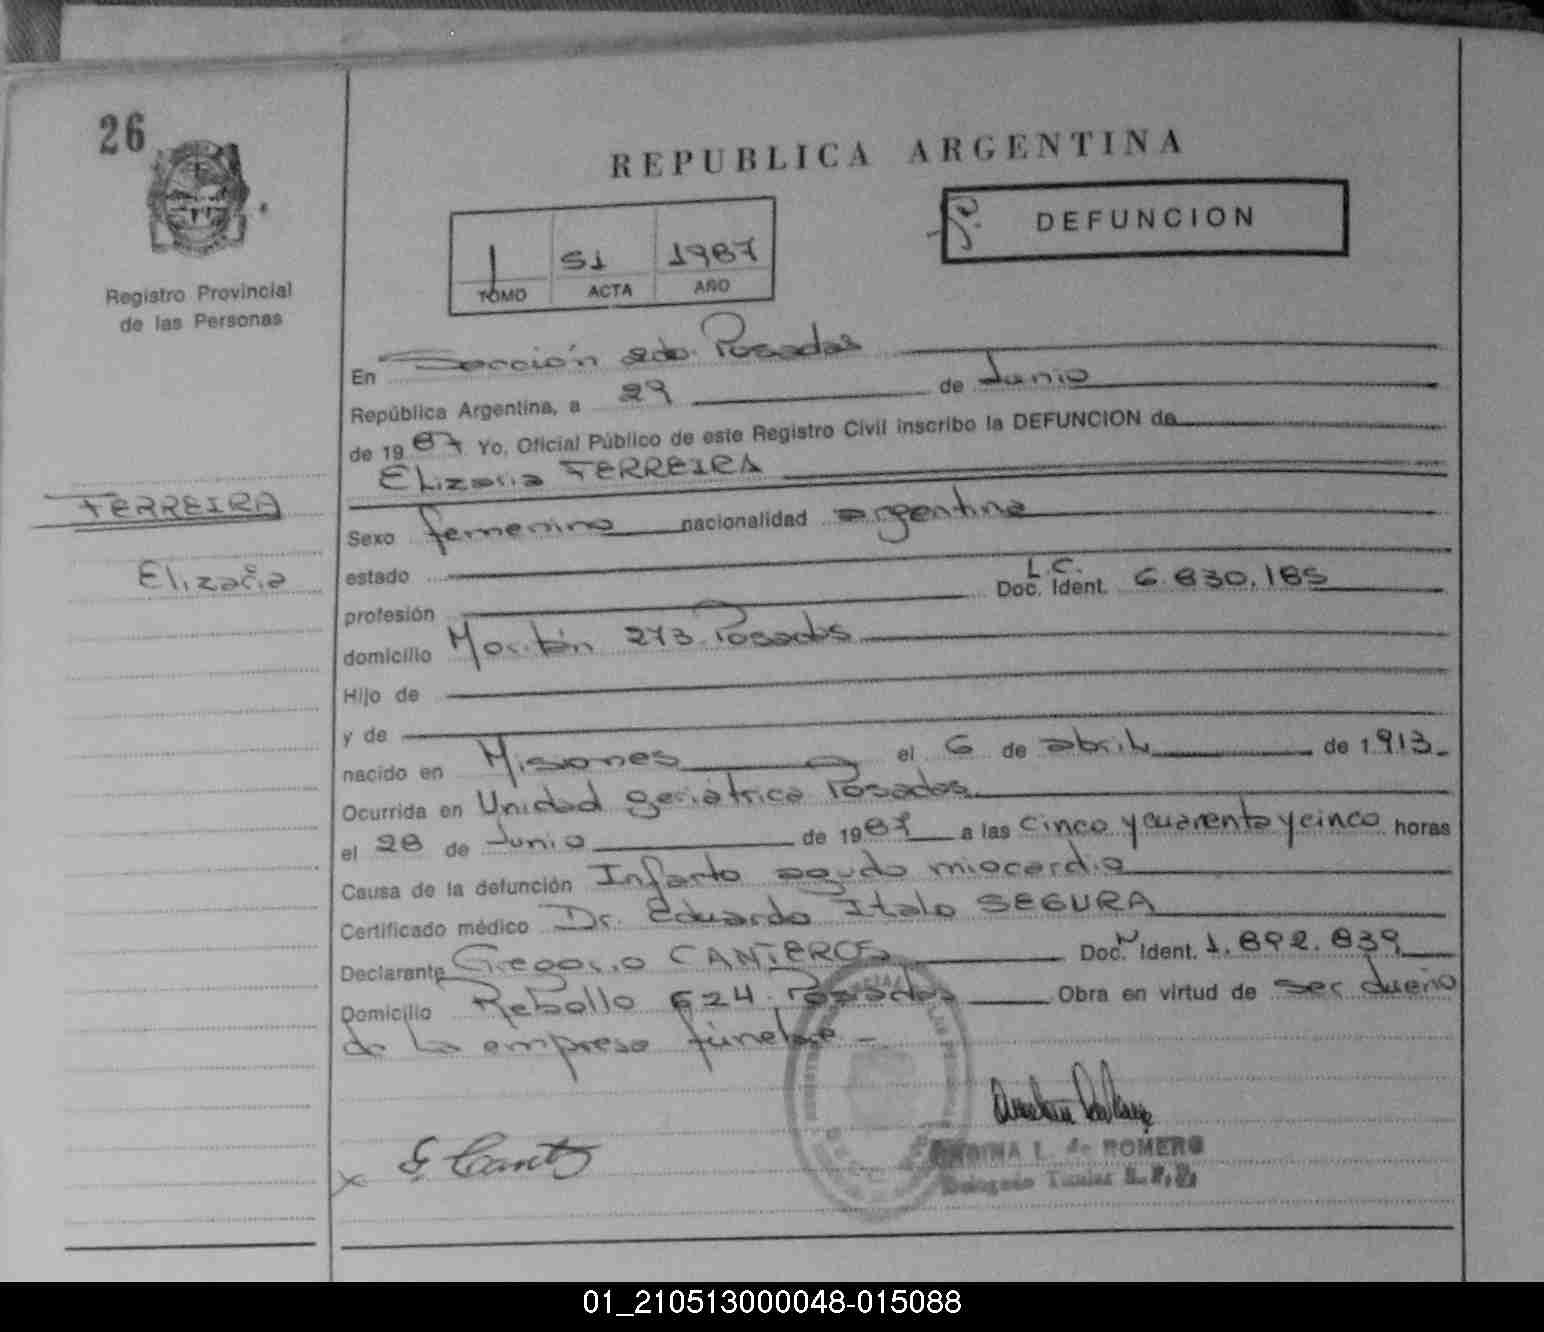 26
REPUBLICA ARGENTINA
DEFUNCION
1 51 1987
TOMO ACTA AÑO
Registro Provincial
de las Personas
En Sección 2da. Posadas
República Argentina, a 29 de Junio
de 1987 Yo, Oficial Público de este Registro Civil inscribo la DEFUNCION de
Elizaria FERREIRA
FERREIRA
Elizaria
Sexo femenino nacionalidad argentina
estado
profesión L.C. Doc. Ident. 6.830.185
domicilio 273 Posadas
Hijo de
y de
nacido en Misiones el 6 de abril de 1913
Ocurrida en Unidad geriátrica Posadas
el 28 de Junio de 1987 a las cinco y cuarenta y cinco horas
Causa de la defunción Infarto agudo miocardio
Certificado médico Dr. Eduardo Italo SEGURA
Declarante Gregorio CANTEROS Doc. Ident. 1.892.839
Domicilio Rebollo 624 Posadas Obra en virtud de ser dueño
de la empresa fúnebre -
L. de ROMERO
01_210513000048-015088